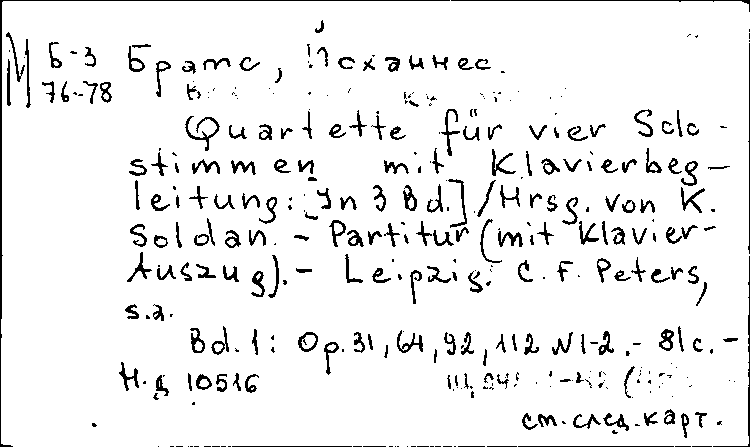 М Б-3 Брамс, Йоханнес.
76-78
Quartette für vier Solo-
stimmen mit Klavierbeg-
leitung: [In 3 Bd.] / Hrsg. von K.
Soldan. - Partitur (mit Klavier-
Auszug). - Leipzig: C. F. Peters,
s.a.
Bd. 1: Op. 31, 64, 92, 112 N1-2. - 81 с. -
Н.д 10516
см. след. карт.